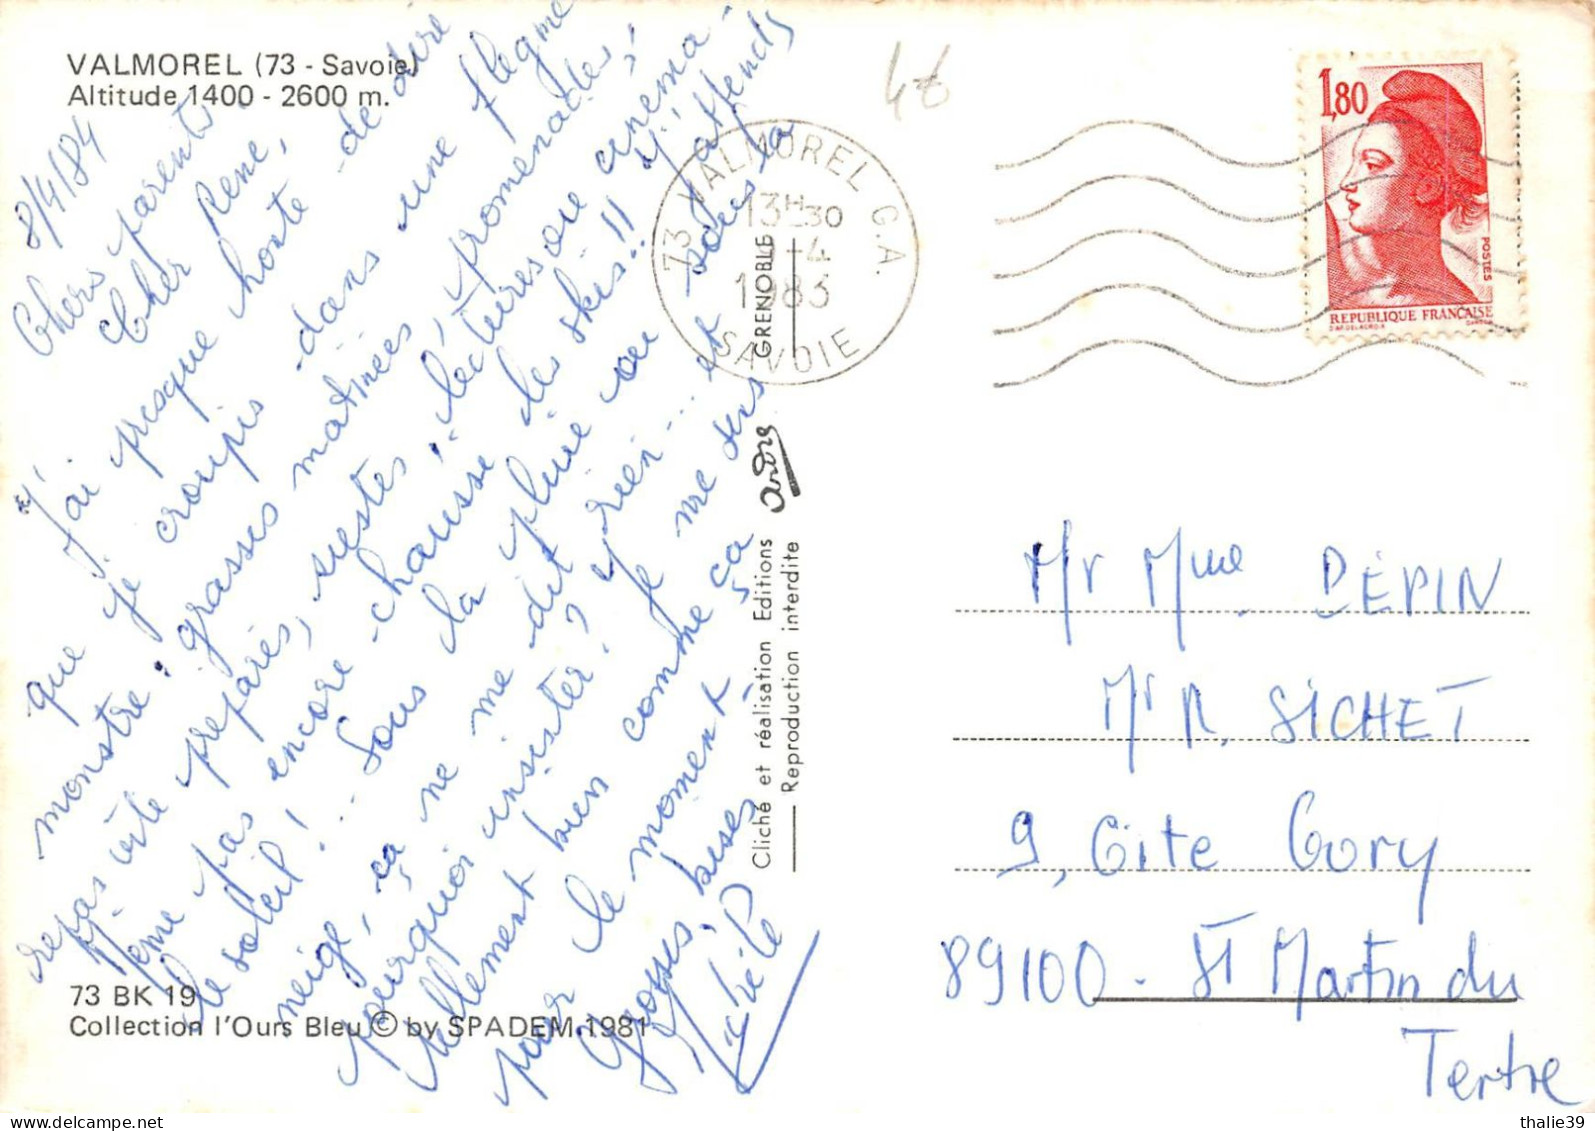 VALMOREL (73 - Savoie)
Altitude 1400 - 2600 m.
8/4/84
Chers parents
Cher René,
J'ai presque honte de dire
que je croupis dans une flegme
monstre : grasses matinées, promenades,
repas vite préparés, siestes, lectures ou cinéma
J'ai même pas encore chaussé les skis!! J'attends
le soleil ! ... Sous la pluie ou sous la
neige, ça ne me dit rien... et
pourquoi insister? Je me sens
tellement bien comme ça
pour le moment
Grosses bises
73 BK 19
Collection l'Ours Bleu © by SPADEM 1981
Cliché et réalisation Editions
Reproduction interdite
GRENOBLE
73 VALMOREL C.A.
13H30
-4
1983
SAVOIE
1,80
POSTES
REPUBLIQUE FRANÇAISE
Mr Mme DÉPIN
Mr R. SICHET
9, Cité Gory
89100 - St Martin du
Tertre
thalie39